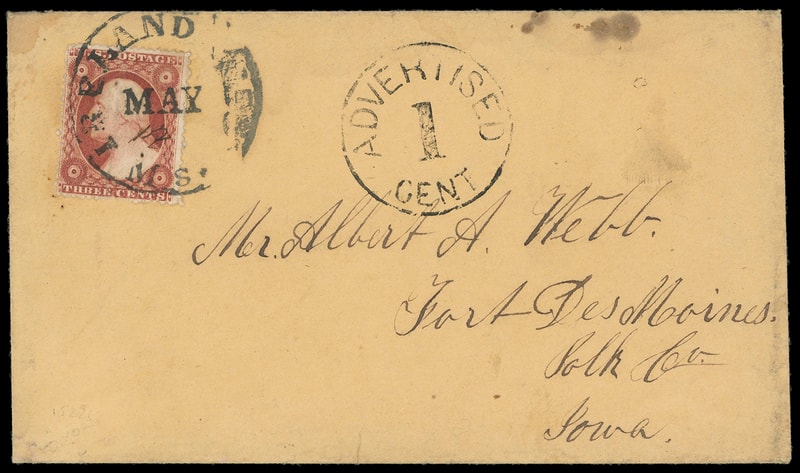 U.S. POSTAGE
THREE CENTS
LAND
MAY
ADVERTISED
1
CENT
Mr. Albert A. Webb.
Fort Des Moines.
Polk Co.
Iowa.